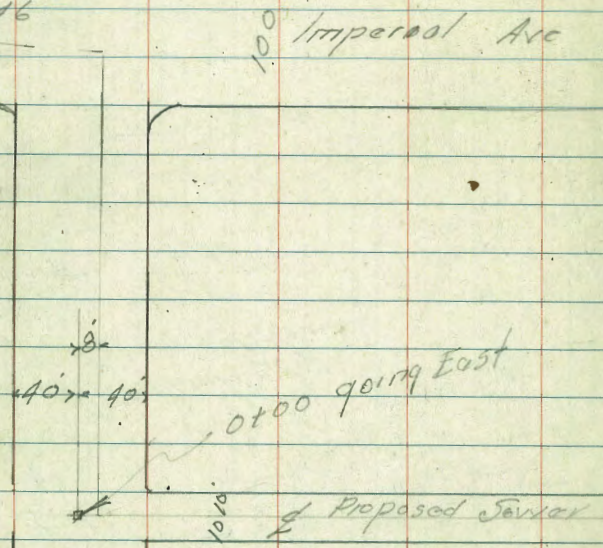 100 Imperal Ave
8'
40' 40'
0+00 going East
10 10'
℄ Proposed Sewer